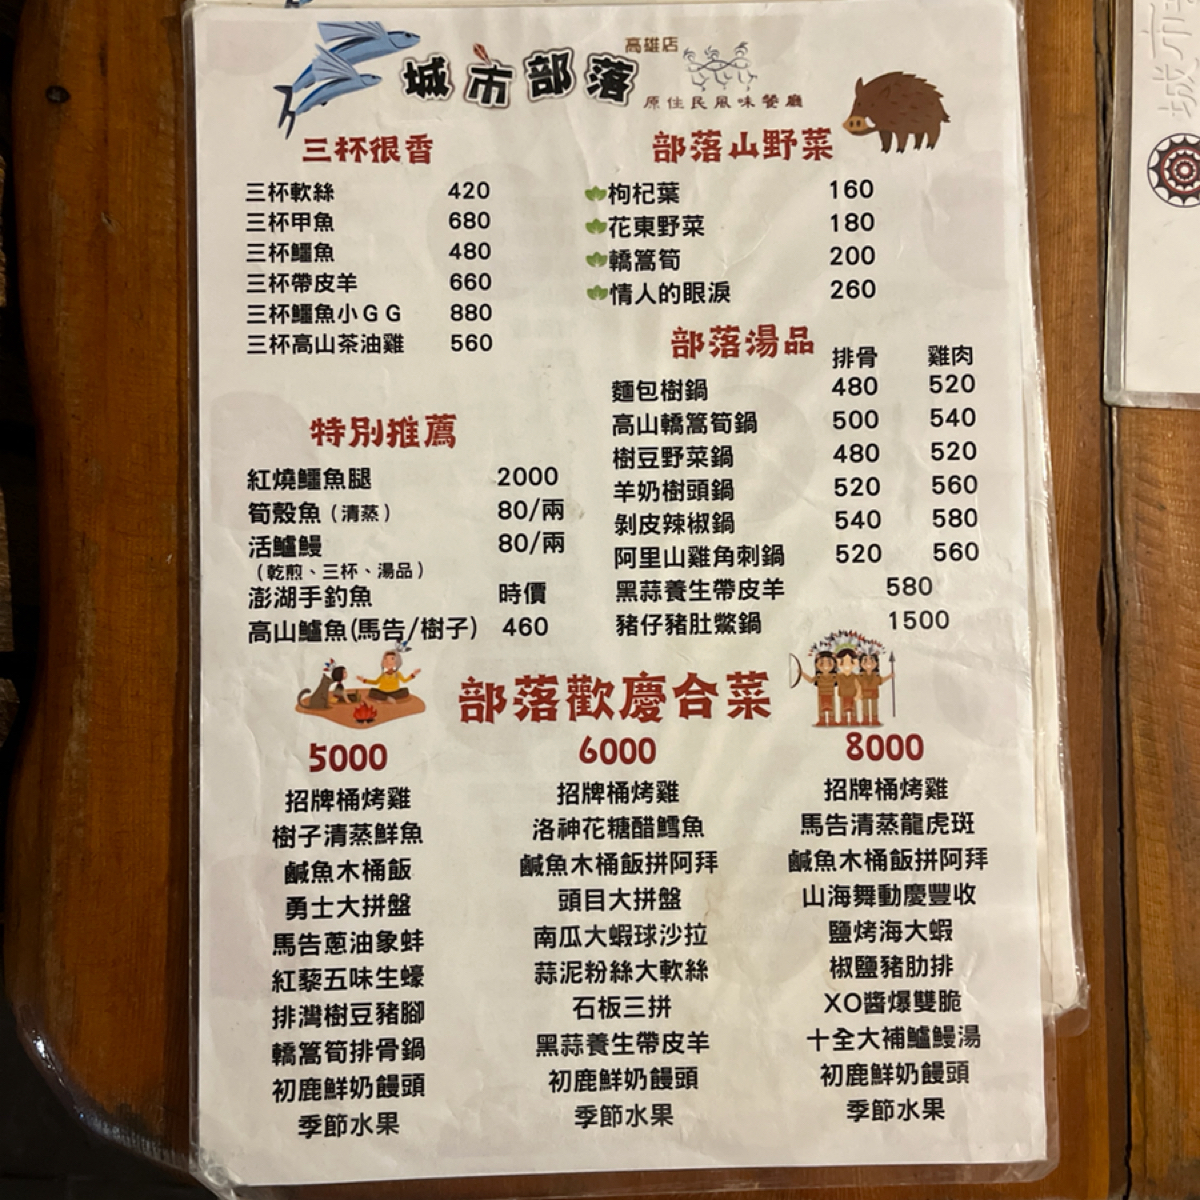 城市部落
高雄店
原住民風味餐廳
三杯很香
三杯軟絲 420
三杯甲魚 680
三杯鱷魚 480
三杯帶皮羊 660
三杯鱷魚小GG 880
三杯高山茶油雞 560
特別推薦
紅燒鱷魚腿 2000
筍殼魚(清蒸) 80/兩
活鱸鰻 80/兩
(乾煎、三杯、湯品)
澎湖手釣魚 時價
高山鱸魚(馬告/樹子) 460
部落山野菜
枸杞葉 160
花東野菜 180
轎篙筍 200
情人的眼淚 260
部落湯品 排骨 雞肉
麵包樹鍋 480 520
高山轎篙筍鍋 500 540
樹豆野菜鍋 480 520
羊奶樹頭鍋 520 560
剝皮辣椒鍋 540 580
阿里山雞角刺鍋 520 560
黑蒜養生帶皮羊 580
豬仔豬肚鱉鍋 1500
部落歡慶合菜
5000
招牌桶烤雞
樹子清蒸鮮魚
鹹魚木桶飯
勇士大拼盤
馬告蔥油象蚌
紅藜五味生蠔
排灣樹豆豬腳
轎篙筍排骨鍋
初鹿鮮奶饅頭
季節水果
6000
招牌桶烤雞
洛神花糖醋鱈魚
鹹魚木桶飯拼阿拜
頭目大拼盤
南瓜大蝦球沙拉
蒜泥粉絲大軟絲
石板三拼
黑蒜養生帶皮羊
初鹿鮮奶饅頭
季節水果
8000
招牌桶烤雞
馬告清蒸龍虎斑
鹹魚木桶飯拼阿拜
山海舞動慶豐收
鹽烤海大蝦
椒鹽豬肋排
XO醬爆雙脆
十全大補鱸鰻湯
初鹿鮮奶饅頭
季節水果
城市